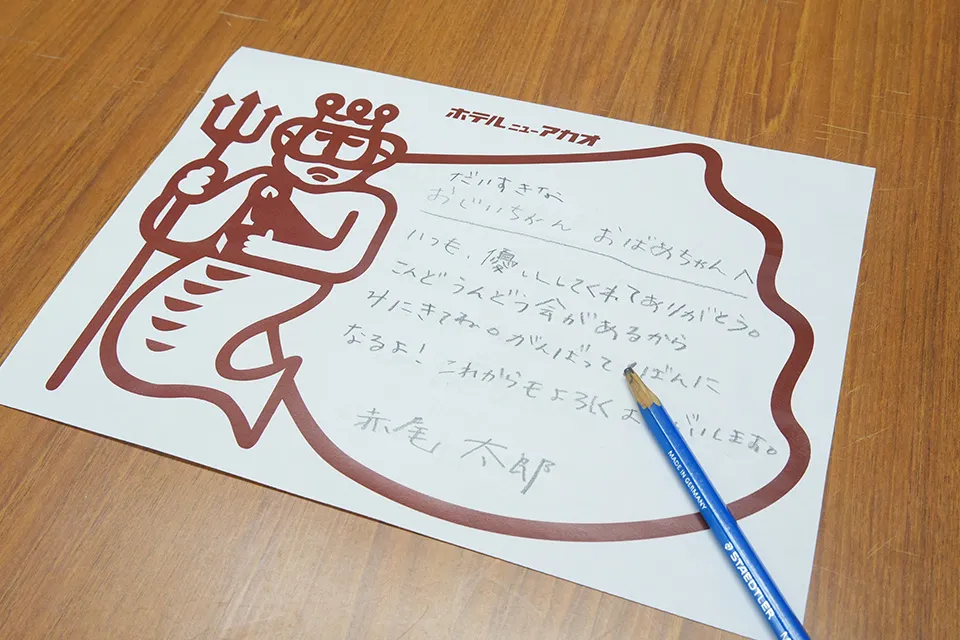 ホテルニューアカオ
だいすきな
おじいちゃん おばあちゃんへ
いつも、優しくしてくれてありがとう。
こんどうんどう会があるから
みにきてね。がんばって ばんに
なるよ! これからもよろしく します。
赤尾 太郎
MADE IN GERMANY
STAEDTLER